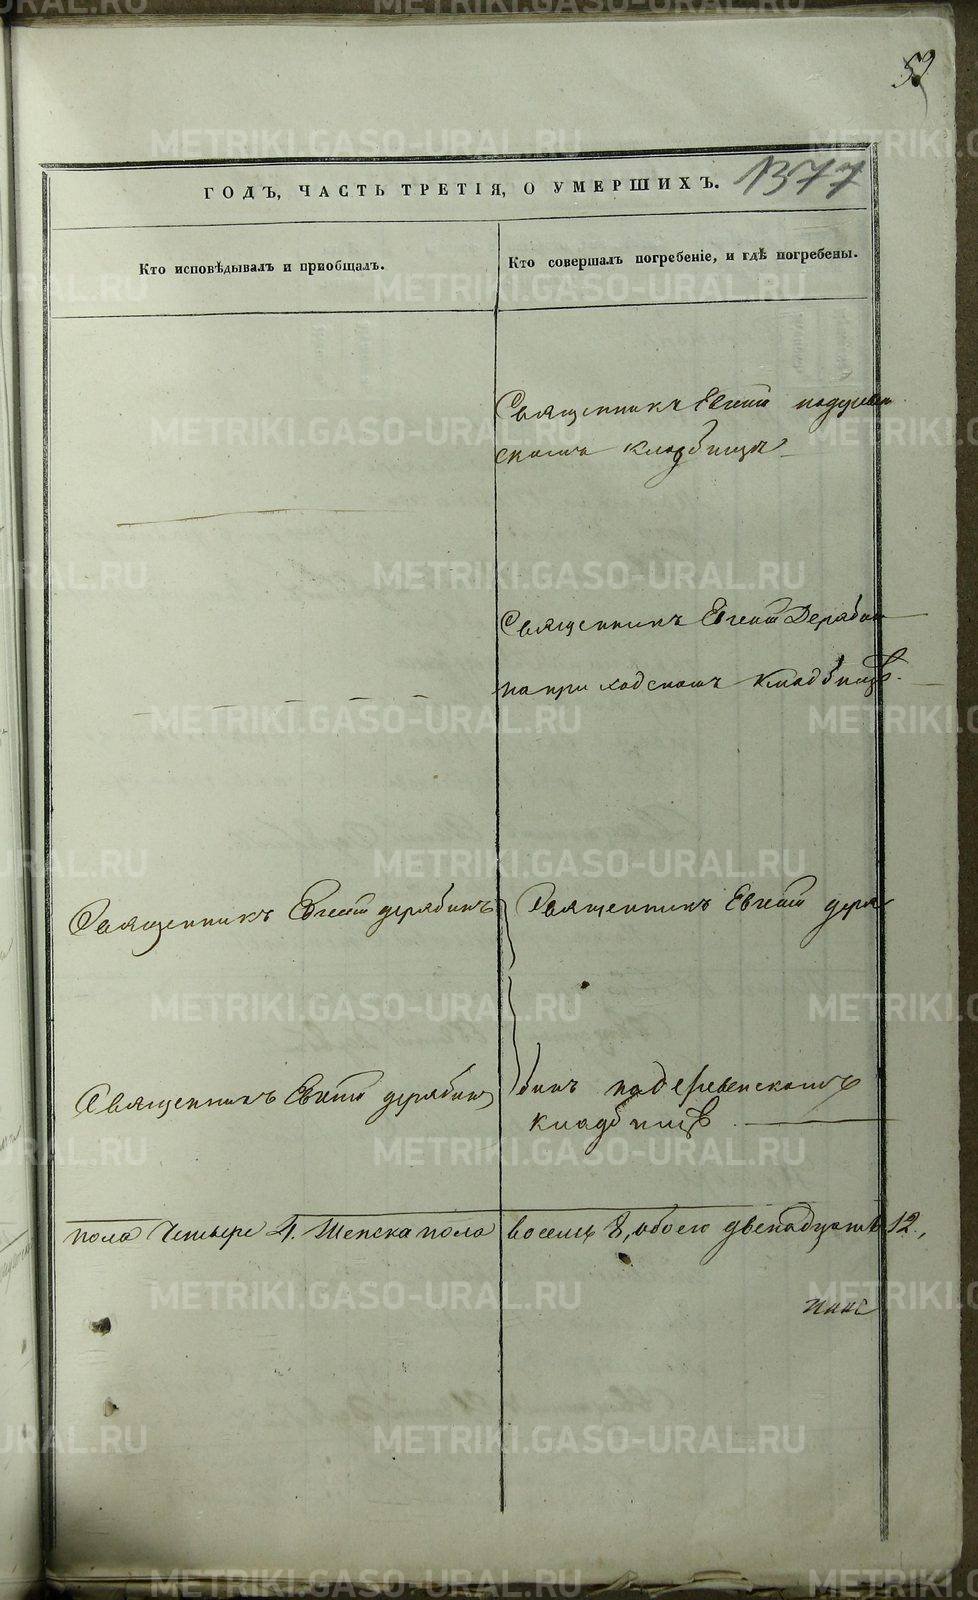 59
ГОДЪ, ЧАСТЬ ТРЕТІЯ, О УМЕРШИХЪ. 1377
Кто исповѣдывалъ и пріобщалъ.
Кто совершалъ погребеніе, и гдѣ погребены.
Священникъ Евгеній
скомъ кладбищѣ
Священникъ Евгеній Дерябин
на приходскомъ кладбищѣ.
Священникъ Евгеній дерябинъ
Священникъ Евгеній деря
Священникъ Евгеній дерябинъ
бинъ на деревенскомъ
кладбищѣ.
пола Четыре 4. Женска пола восемь 8, обоего двенадцать 12,
METRIKI.GASO-URAL.RU